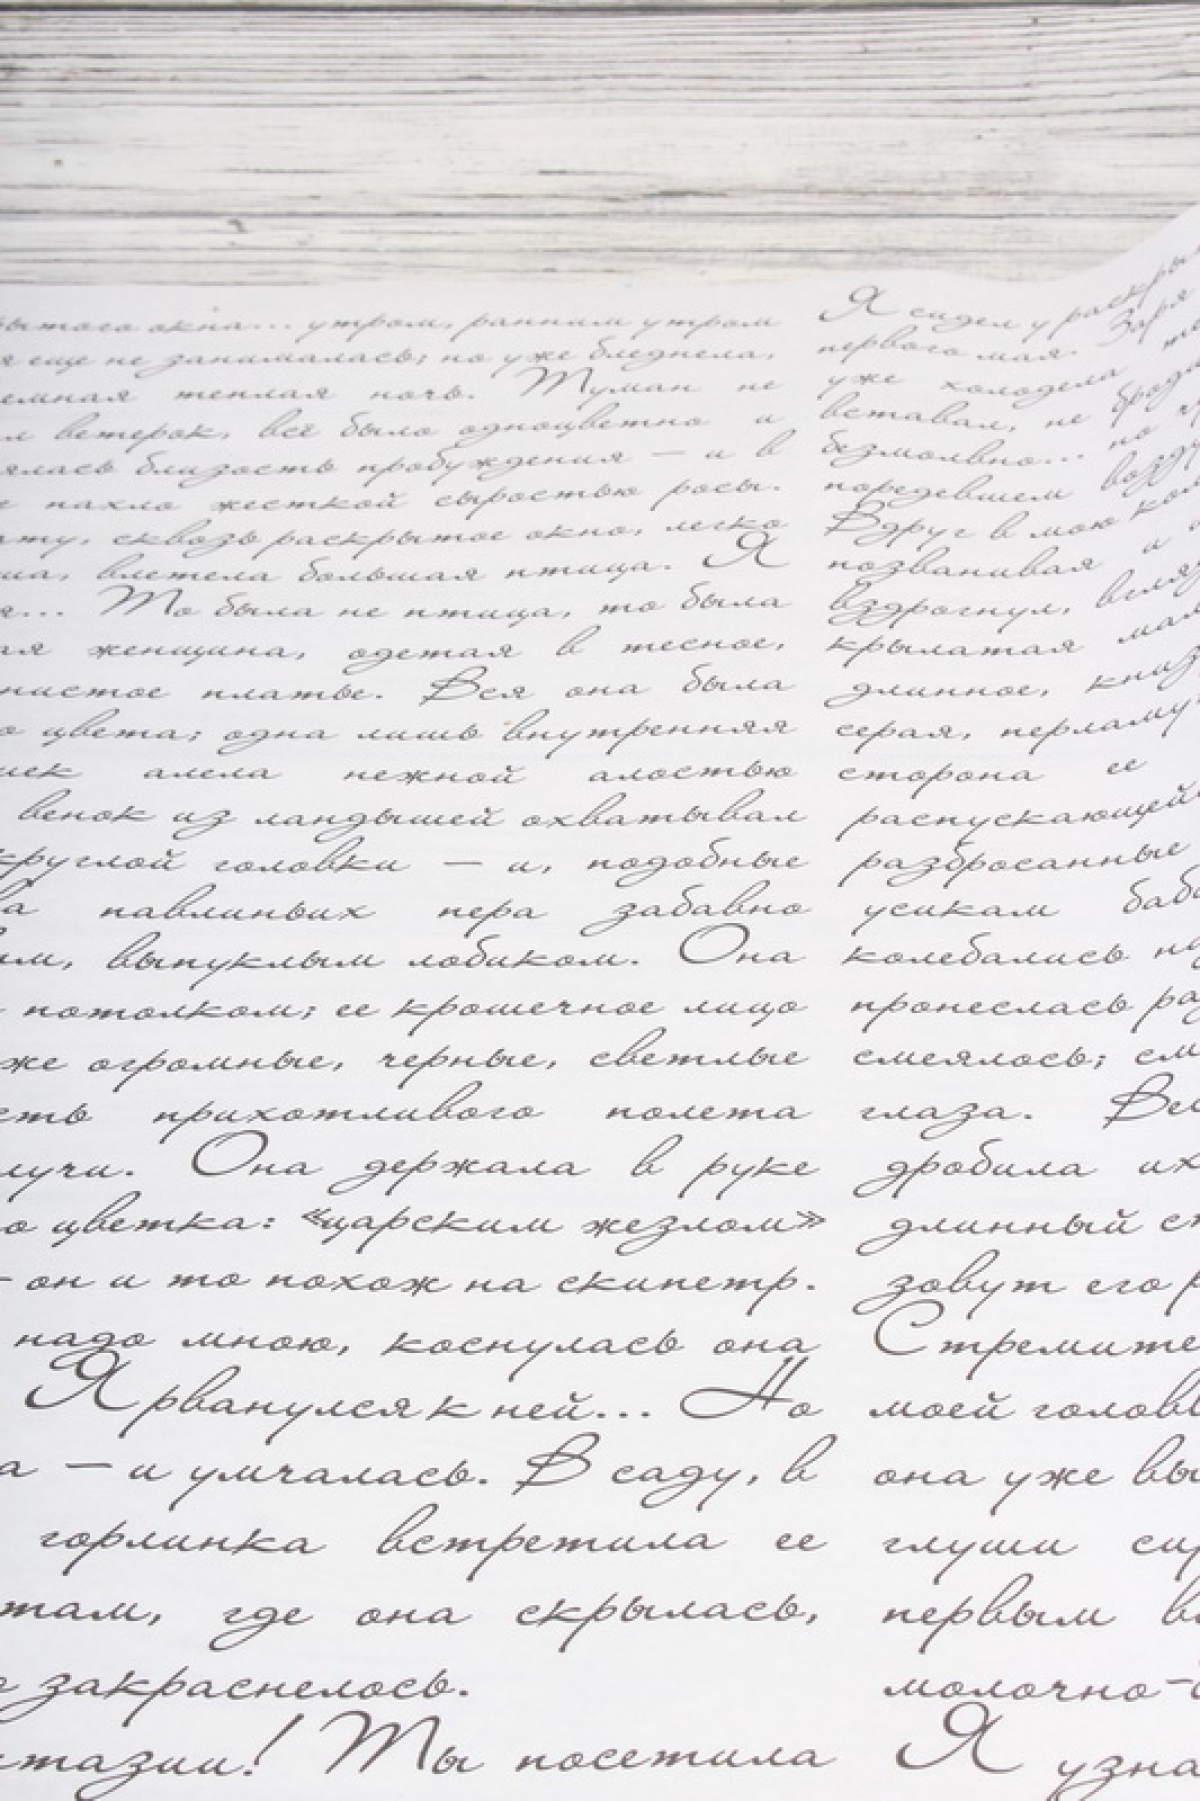 ытого окна... утром, ранним утром
я еще не занималась; но уже бледнела,
емная теплая ночь. Туман не
л ветерок, всё было одноцветно и
ялась близость пробуждения — и в
е пахло жесткой сыростью росы.
ату, сквозь раскрытое окно, легко
ша, влетела большая птица. Я
я... То была не птица, то была
ая женщина, одетая в тесное,
нистое платье. Вся она была
о цвета; одна лишь внутренняя
шек алела нежной алостью
венок из ландышей охватывал
круглой головки — и, подобные
ва павлиньих пера забавно
ым, выпуклым лобиком. Она
потолком; ее крошечное лицо
же огромные, черные, светлые
сть прихотливого полета
лучи. Она держала в руке
о цветка: «царским жезлом»
— он и то похож на скипетр.
надо мною, коснулась она
Я рванулся к ней... Но
а — и умчалась. В саду, в
горлинка встретила ее
там, где она скрылась,
о закраснелось.
тазии! Ты посетила
Я сидел у раскры
первого мая. Заря
уже холодела те
вставал, не броди
безмолвно... но чу
поредевшем возду
Вдруг в мою ком
позванивая и
вздрогнул, вгляд
крылатая мал
длинное, книзу
серая, перламу
сторона ее
распускающей
разбросанные
усикам бабо
колебались на
пронеслась ра
смеялось; см
глаза. Вес
дробила их
длинный ст
зовут его р
Стремите
моей голов
она уже вы
глуши сир
первым в
молочно-б
Я узна